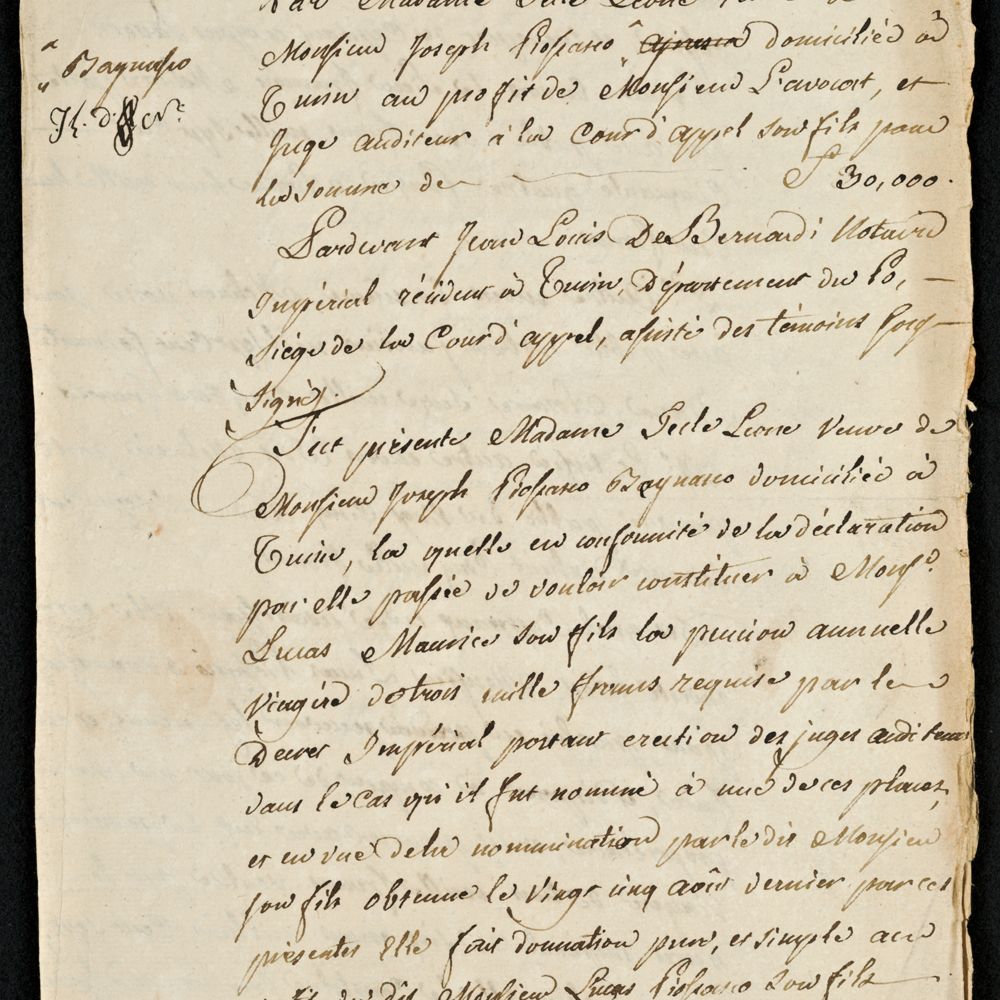 par Madame Tecle Leone veuve de
Monsieur Joseph Piossasco domiciliée à
Turin au profit de Monsieur L'avocat, et
Juge auditeur à la Cour d'appel son fils pour
la somme de 30,000.
Bagnasco
Pardevant Jean Louis DeBernardi Notaire
Impérial résident à Turin, Département du Po,
siége de la Cour d'appel, assisté des témoins sous
signés.
Fut présente Madame Tecle Leone Veuve de
Monsieur Joseph Piossasco Bagnasco domiciliée à
Turin, la quelle en conformité de la déclaration
par elle passée de vouloir constituer à Monsr.
Lucas Maurice son fils la pension annuelle
viagére de trois mille francs requise par le
Decret Impérial portant erection des juges auditeurs
dans le cas qu'il fut nommé à une de ces places,
et en vue de la nommination par le dit Monsieur
son fils obtenue le vingt cinq août dernier par ces
présentes Elle fait donnation pure, et simple au
dit Monsieur Lucas Piossasco son fils